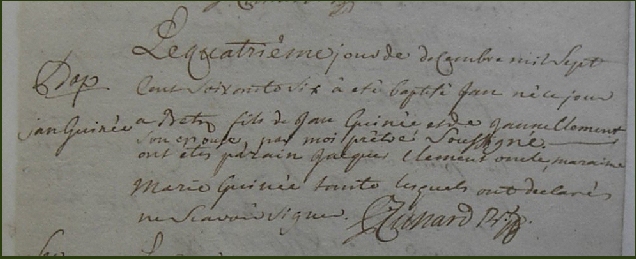 Le quatrième jour de decembre mil sept
Bap
cent soixante six à eté baptisé Jan né ce jour
jan Guinée
a fils de Jan Guinée et de Clement
son epouse par moi prêtre Soussigné
ont etes parain Jacques Clement oncle, maraine
Marie Guinée tante lesquels ont declarés
ne scavoir signer.